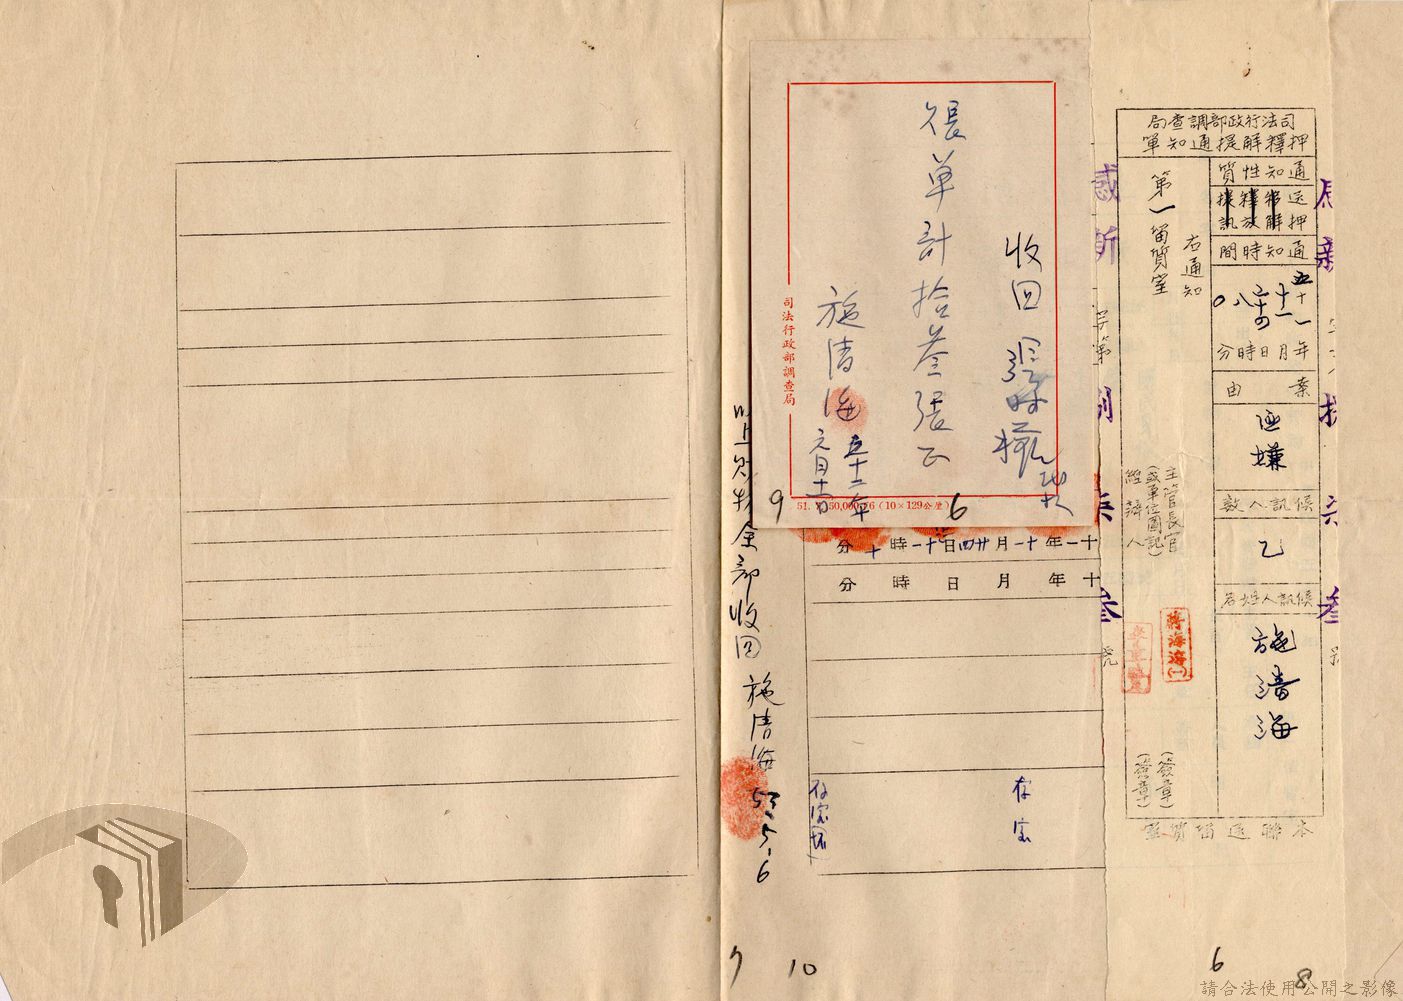 司法行政部調查局
押釋解提通知單
通知性質
送押
移解
釋放
提訊
通知時間
五十一年
十一月
二十四日
八時
0分
案由
匪嫌
候訊人數
乙
候訊人姓名
施清海
右通知
第一留質室
主管長官
(或單位圖記)
經辦人
蔣海溶(一)
(簽章)
(簽章)
本聯送留質室
字第
號
收回張
賬單計拾叁張正
施清海
五十二年
元月十一日
司法行政部調查局
51. 50,000 76 (10×129公厘)
9
6
十一年十一月廿四日十一時十分
十年月日時分
存宝
以上財物全部收回 施清海 53.5.6
7
10
6
8
請合法使用公開之影像